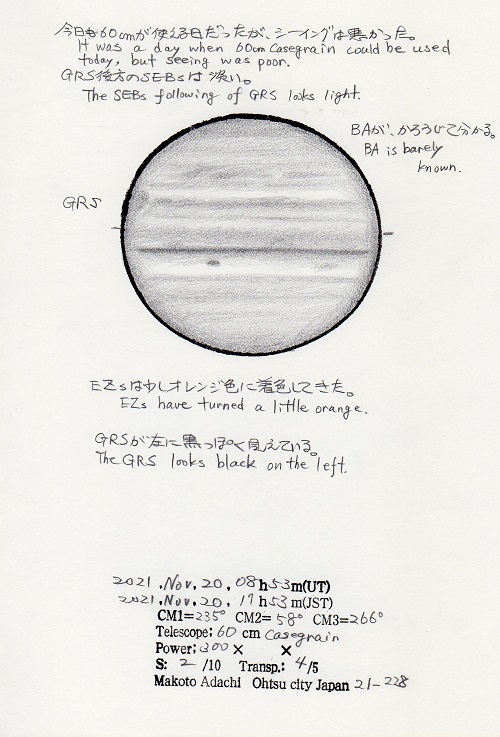 今日も60cmが使える日だったが、シーイングは悪かった。
It was a day when 60cm Casegrain could be used
today, but seeing was poor.
GRS後方のSEBsは淡い。
The SEBs following of GRS looks light.
BAが、かろうじて分かる。
BA is barely
known.
GRS
EZsは少しオレンジ色に着色してきた。
EZs have turned a little orange.
GRSが左に黒っぽく見えている。
The GRS looks black on the left.
2021.Nov.20, 08h53m(UT)
2021.Nov.20, 17h53m(JST)
CM1=235° CM2= 58° CM3=266°
Telescope: 60 cm Casegrain
Power: 300× ×
S: 2 /10 Transp.: 4/5
Makoto Adachi Ohtsu city Japan 21-228